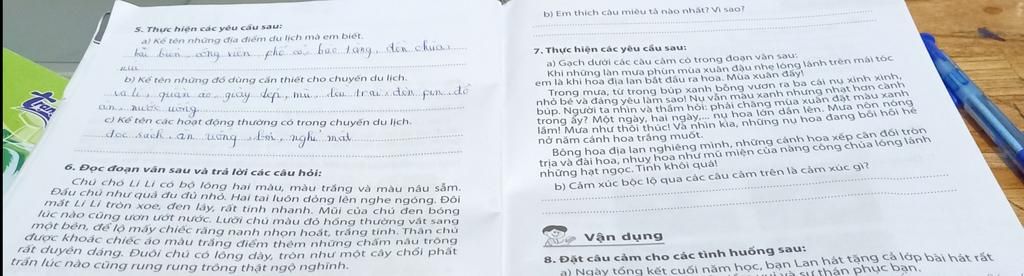 5. Thực hiện các yêu cầu sau:
a) Kể tên những địa điểm du lịch mà em biết.
bãi biển, công viên, phố cổ, bảo tàng, đền chùa,
núi
b) Kể tên những đồ dùng cần thiết cho chuyến du lịch.
va li, quần áo, giày dép, mũ, lều trại, đèn pin, đồ
ăn, nước uống
c) Kể tên các hoạt động thường có trong chuyến du lịch.
đọc sách, ăn uống, bơi, nghỉ mát
6. Đọc đoạn văn sau và trả lời các câu hỏi:
Chú chó Li Li có bộ lông hai màu, màu trắng và màu nâu sẫm.
Đầu chú như quả đu đủ nhỏ. Hai tai luôn dỏng lên nghe ngóng. Đôi
mắt Li Li tròn xoe, đen láy, rất tinh nhanh. Mũi của chú đen bóng
lúc nào cũng ươn ướt nước. Lưỡi chú màu đỏ hồng thường vắt sang
một bên, để lộ mấy chiếc răng nanh nhọn hoắt, trắng tinh. Thân chú
được khoác chiếc áo màu trắng điểm thêm những chấm nâu trông
rất duyên dáng. Đuôi chú có lông dày, tròn như một cây chổi phất
trần lúc nào cũng rung rung trông thật ngộ nghĩnh.
b) Em thích câu miêu tả nào nhất? Vì sao?
7. Thực hiện các yêu cầu sau:
a) Gạch dưới các câu cảm có trong đoạn văn sau:
Khi những làn mưa phùn mùa xuân đậu nhẹ lóng lánh trên mái tóc
em là khi hoa địa lan bắt đầu ra hoa. Mùa xuân đấy!
Trong mưa, từ trong búp xanh bỗng vươn ra ba cái nụ xinh xinh,
nhỏ bé và đáng yêu làm sao! Nụ vẫn màu xanh nhưng nhạt hơn cành
búp. Người ta nhìn và thầm hỏi: phải chăng mùa xuân đặt màu xanh
trong ấy? Một ngày, hai ngày,... nụ hoa lớn dần lên. Mưa nôn nóng
lắm! Mưa như thôi thúc! Và nhìn kìa, những nụ hoa đang bồi hồi hé
nở năm cánh hoa trắng muốt.
Bông hoa địa lan nghiêng mình, những cánh hoa xếp cân đối tròn
trịa và đài hoa, nhuỵ hoa như mũ miện của nàng công chúa lóng lánh
những hạt ngọc. Tinh khôi quá!
b) Cảm xúc bộc lộ qua các câu cảm trên là cảm xúc gì?
Vận dụng
8. Đặt câu cảm cho các tình huống sau:
a) Ngày tổng kết cuối năm học, bạn Lan hát tặng cả lớp bài hát rất
vui và sự thán phục bạn.